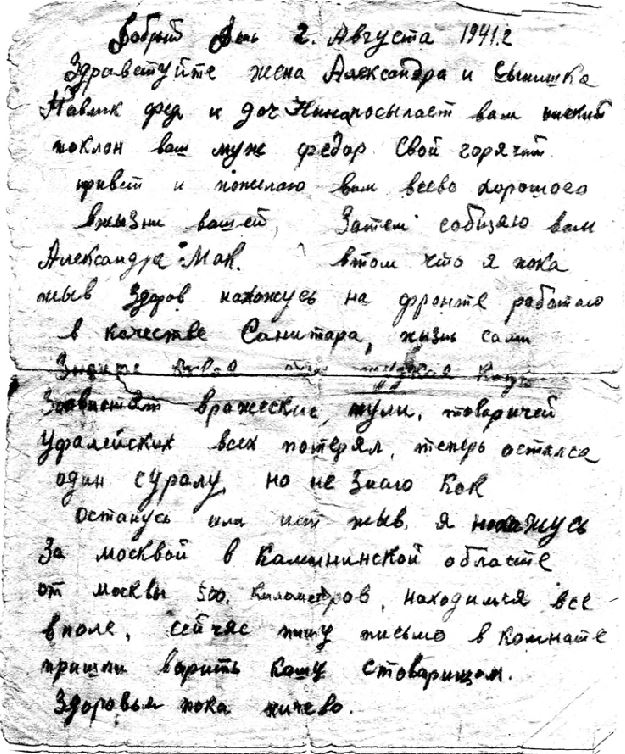 Добрый День 2. Августа 1941.г
Здравстуйте жена Александра и сынишка
Павлик фед и доч Нина посылает вам ниский
поклон ваш муж федор. Свой горячий
привет и пожелаю вам всево хорошово
вжызни вашей, Затем собщяю вам
Александра Мак. втом что я пока
жыв Здоров нахожусь на фронте работаю
в качестве Санитара, жызнь сами
Знаите
Засвистят вражеские, пули, товаричей
Уфалейских всех потерял, теперь осталса
один суралу, но не Знаю Как
останусь или нет жыв, я нахажусь
За москвой в Калининской областе
от москвы 500. километров, находимся все
вполе, сейчяс пишу письмо в комнате
пришли варить кашу стоварищом.
Здоровье пока ничево.